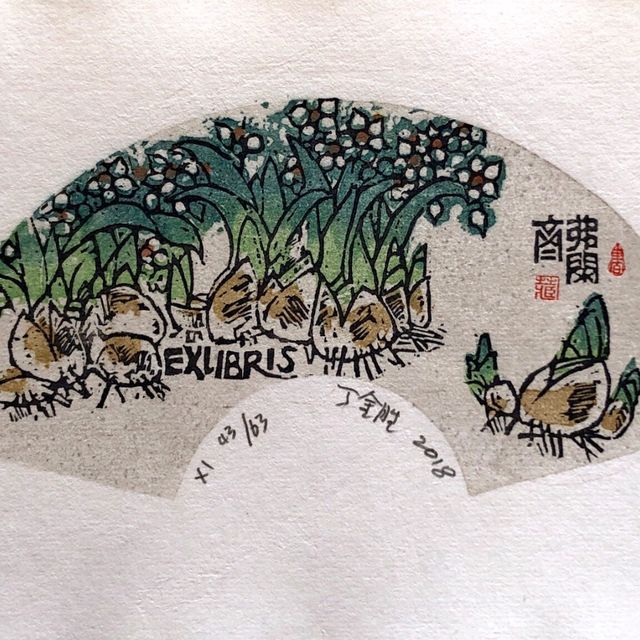 弗閑
書
藏
EXLIBRIS
X1 43/63
丁金胜 2018